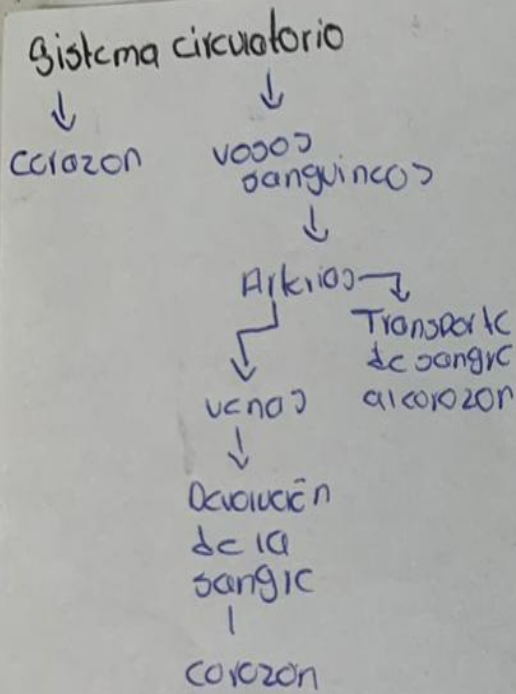 Sistema circulatorio
corazon
vasos
sanguineos
Arterias
Transporte
de sangre
al corazon
venas
Devolución
de la
sangre
corazon